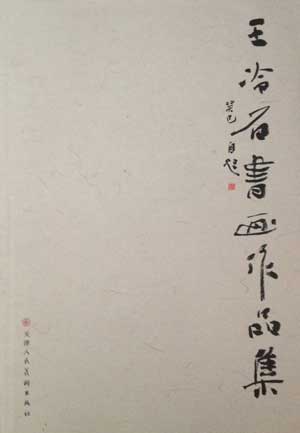 王冷石書画作品集
癸巳 自题
天津人民美術出版社